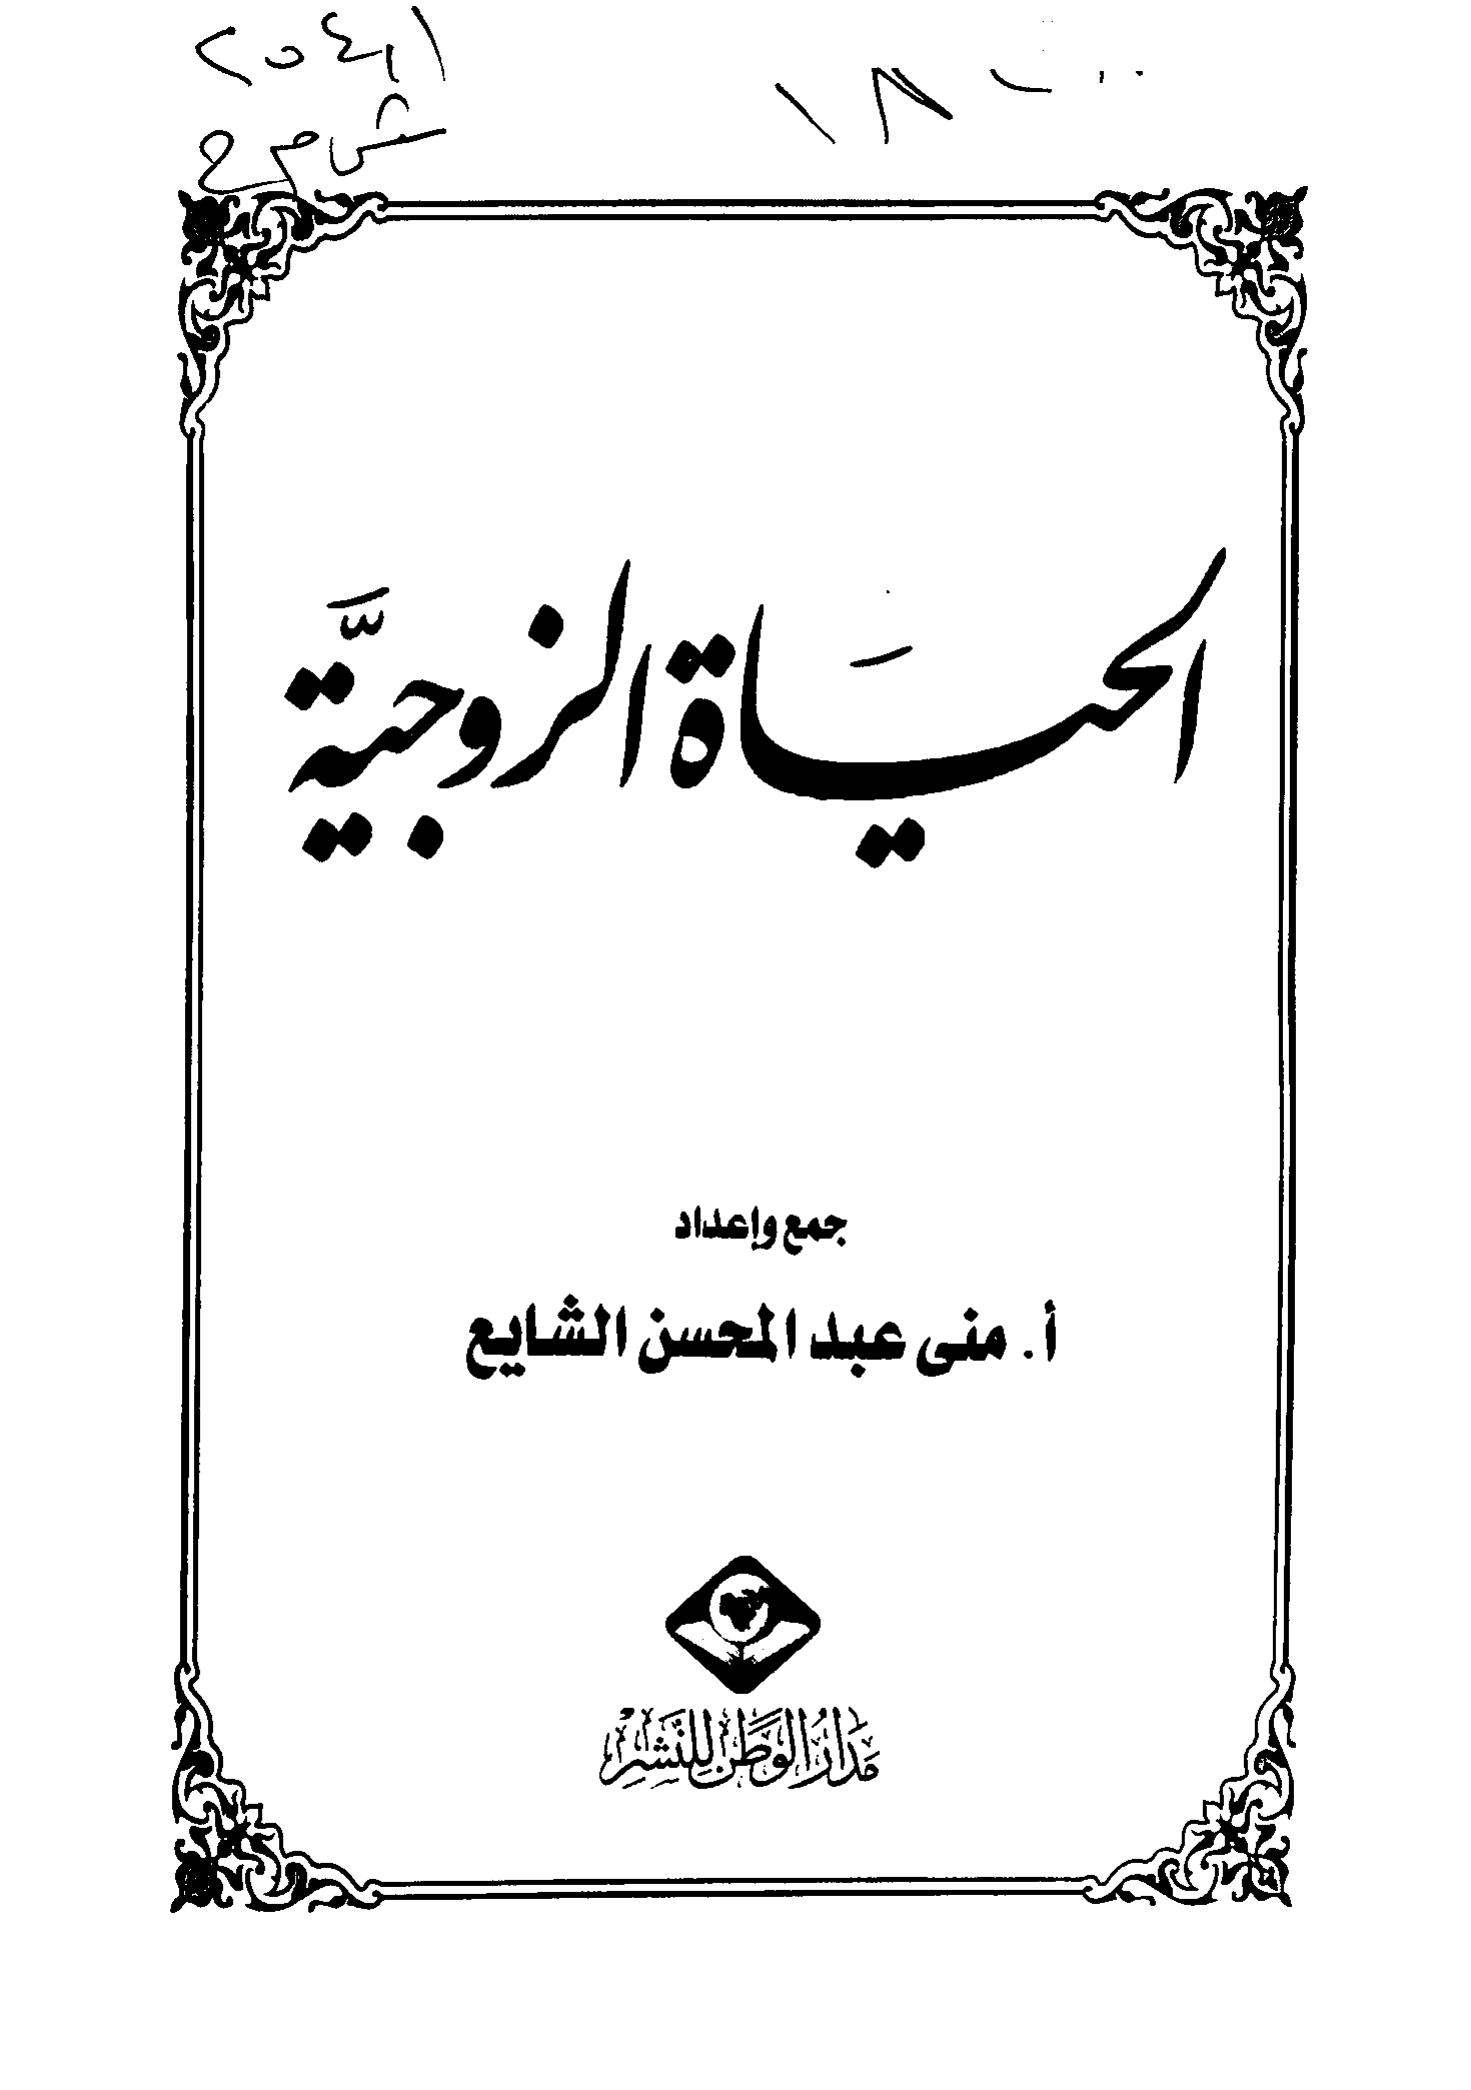 الحياة الزوجيَّة
جمع وإعداد
أ. منى عبد المحسن الشايع
مَدَارُ الوَطَن لِلنَّشْرِ